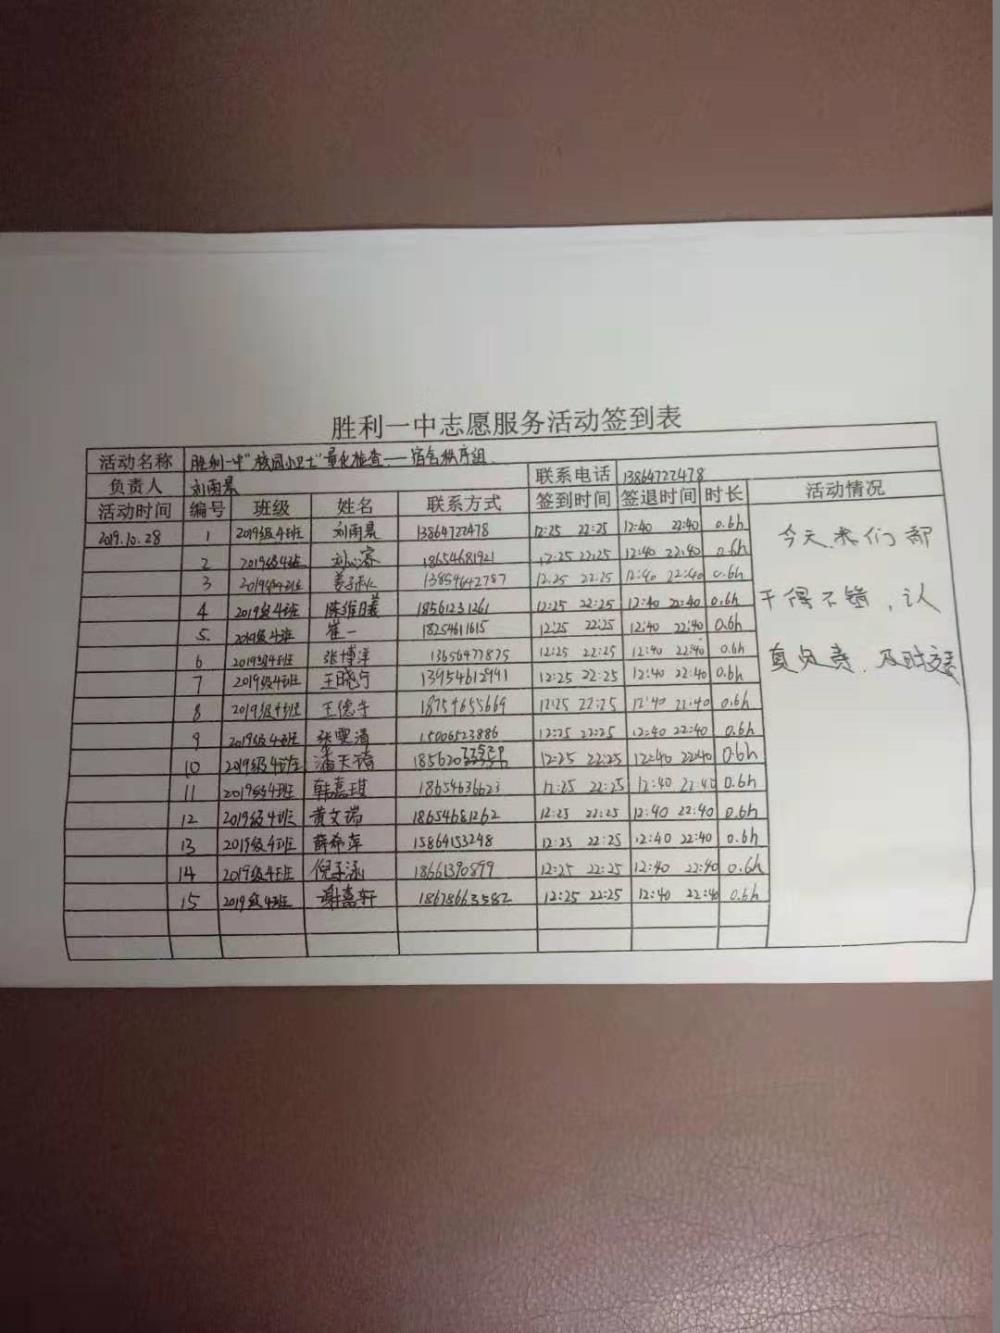 胜利一中志愿服务活动签到表
活动名称 胜利一中"校园小卫士"量化检查——宿舍秩序组
负责人 刘雨晨 联系电话 13864722478
活动时间 编号 班级 姓名 联系方式 签到时间 签退时间 时长 活动情况
2019.10.28 1 2019级4班 刘雨晨 13864722478 12:25 22:25 12:40 22:40 0.6h
2 2019级4班 18654681921 12:25 22:25 12:40 22:40 0.6h
3 2019级4班 姜子秋 13854642787 12:25 22:25 12:40 22:40 0.6h
4 2019级4班 陈维曦 18561231261 12:25 22:25 12:40 22:40 0.6h
5 2019级4班 崔一 18254611615 12:25 22:25 12:40 22:40 0.6h
6 2019级4班 张博洋 13656477875 12:25 22:25 12:40 22:40 0.6h
7 2019级4班 王晓宁 13954612941 12:25 22:25 12:40 22:40 0.6h
8 2019级4班 王德宇 18754655669 12:25 22:25 12:40 22:40 0.6h
9 2019级4班 张雯清 15006523886 12:25 22:25 12:40 22:40 0.6h
10 2019级4班 潘天琦 185620 12:25 22:25 12:40 22:40 0.6h
11 2019级4班 韩嘉琪 18654636623 12:25 22:25 12:40 22:40 0.6h
12 2019级4班 黄文瑞 18654681262 12:25 22:25 12:40 22:40 0.6h
13 2019级4班 薛希萍 15864153248 12:25 22:25 12:40 22:40 0.6h
14 2019级4班 倪子涵 18661390899 12:25 22:25 12:40 22:40 0.6h
15 2019级4班 谢嘉轩 18678663582 12:25 22:25 12:40 22:40 0.6h
今天我们都
干得不错，认
真负责，及时